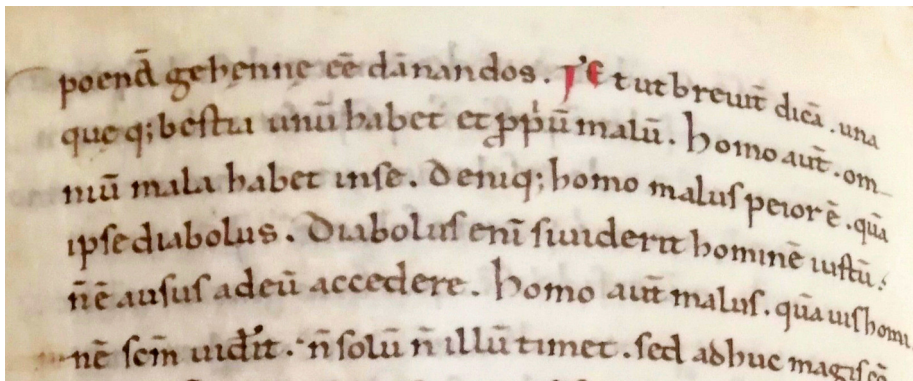 poenā gehęnnę eē dānandos. Et ut breuit̄ dicā. una
quęq; bestia unū habet et ꝓpͥū malū. homo aut̄. om
niū mala habet inse. Deniq; homo malus peior ē. quā
ipse diabolus. Diabolus enī si uiderit hominē iustū;
n̄ ē ausus ad eū accedere. homo aut̄ malus. quāuis homi
nē scm̄ uiderit. n̄ solū n̄ illū timet. sed adhuc magis